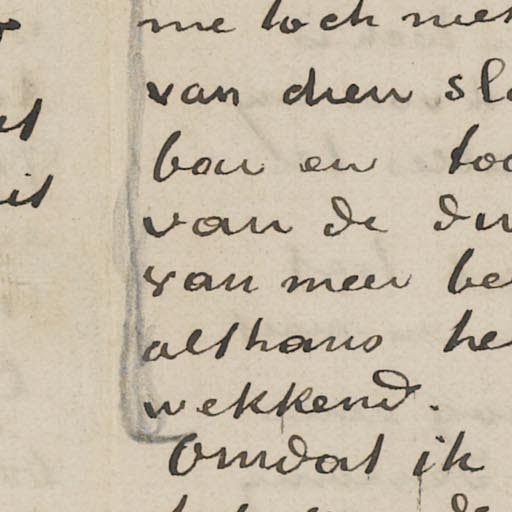 me toch niet
van dien sl
bon en too
van de du
van meer be
althans he
wekkend.
Omdat ik